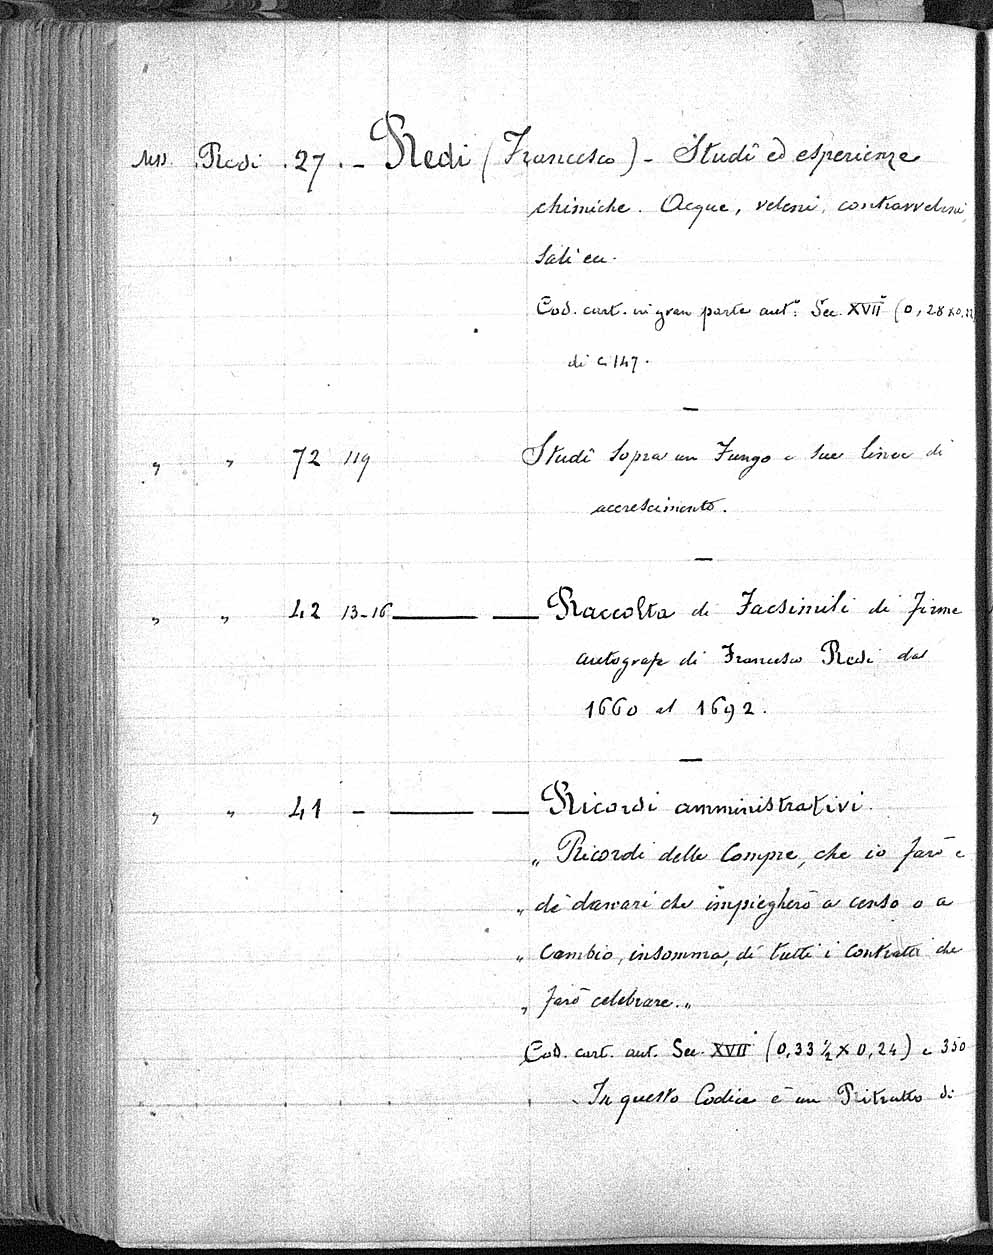 Mss. Redi . 27 . - Redi (Francesco) - Studî ed esperienze
chimiche. Acque, veleni, contravveleni,
Sali ecc.
Cod. cart. in gran parte aut.º Sec. XVIIº (0,28 x 0,22
di c. 147.
—
" " 72 119 Studî sopra un Fungo e sue linee di
accrescimento.
—
" " 42 13-16 — — Raccolta di Facsimili di firme
autografe di Francesco Redi dal
1660 al 1692.
—
" " 41 - — — Ricordi amministrativi.
" Ricordi delle Compre, che io farò e
" de danari che impiegherò a censo o a
" Cambio, insomma, di tutti i contratti che
" farò celebrare. "
Cod. cart. aut. Sec. XVIIº (0,33 ½ X 0,24) c 350
In questo Codice è un Ritratto di